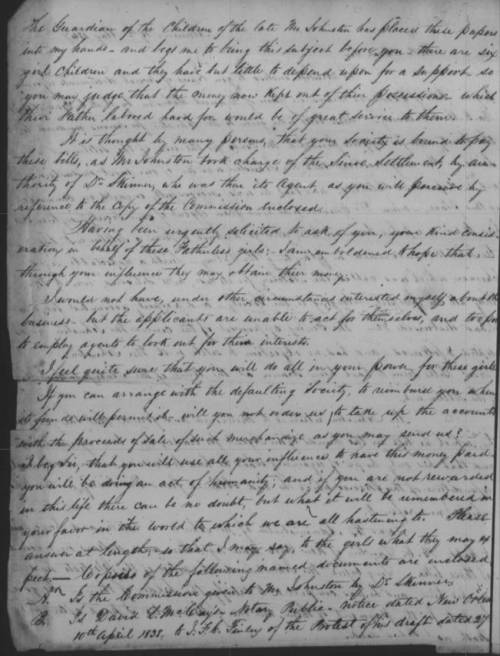 The Guardian of the Children of the late Mr Johnston has placed these papers
into my hands - and begs me to bring this subject before you - there are six
girl Children and they have but little to depend upon for a support so
you may judge that the money now kept out of their possession - which
their Father labored hard for would be of great service to them.
It is thought by many persons, that your Society is bound to pay
these bills, as Mr Johnston took charge of the Sinoe Settlement, by au-
thority of Dr Skinner, who was then its Agent, as you will perceive by
reference to the Copy of the Commission enclosed.
Having been urgently solicited to ask of you, your kind consid-
eration in behalf of these Fatherless girls; I am emboldened to hope that
through your influence they may obtain their money.
I would not have, under other circumstances interested myself, about the
business - but the applicants are unable to act for themselves, and too poor
to employ agents to look out for their interests.
I feel quite sure that you will do all in your power for these girls
If you can arrange with the defaulting Society, to reimburse you when
its funds will permit it - will you not order us, to take up the accounts
with the proceeds of sale of such merchandize as you may send us?
I beg Sir, that you will use all your influence to have this money paid
you will be doing an act of humanity; and if you are not rewarded
in this life there can be no doubt, but what it will be remembered in
your favor in the World to which we are all hastening to. Please
answer at length, so that I may say to the girls what they may ex
pect. — Copies of the following named documents are enclosed
A. Is the Commission given to Mr Johnston by Dr Skinner
B. Is David L. Notary Public - notice dated New Orleans
10th April 1838, to J. F. C. Finley of the Protest of his draft dated 27